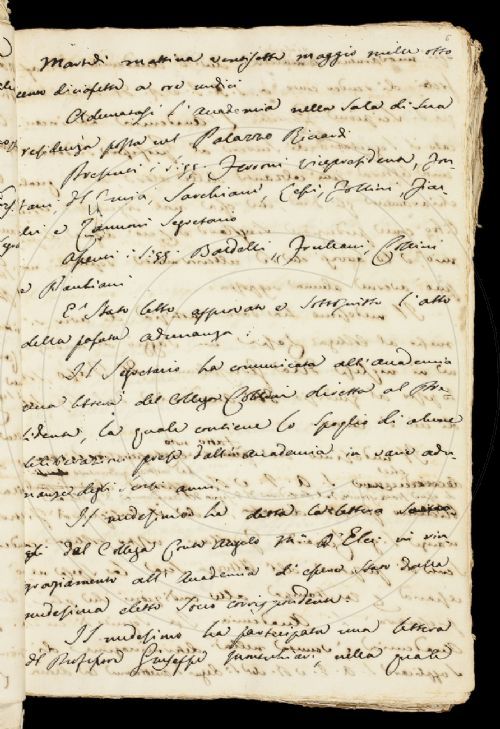 6
Martedì mattina ventisette maggio mille otto
cento diciassette a ore undici
Adunatasi l'Accademia nella Sala di Sua
residenza posta nel Palazzo Ricardi
Presenti i Sigg. Ferroni vicepresidente, Fon
tani, Del Furia, Sarchiani, Collini,
e Zannoni Segretario
Assenti i Sigg. Baldelli,
e
E' stato letto approvato e sottoscritto l'atto
della passata adunanza.
Il Segretario ha comunicata all'Accademia
una lettera del Collega diretta al Pre
sidente, la quale contiene lo spoglio di alcune
deliberazioni prese dall'Accademia in varie adu
nanze degli scorsi anni.
Il medesimo ha letta la lettera
gli dal Collega Conte Angelo M.a D'Elci in rin
graziamento all'Accademia d'essere stato dalla
medesima eletto Socio corrispondente.
Il medesimo ha partecipata una lettera
del Professore Giuseppe nella quale